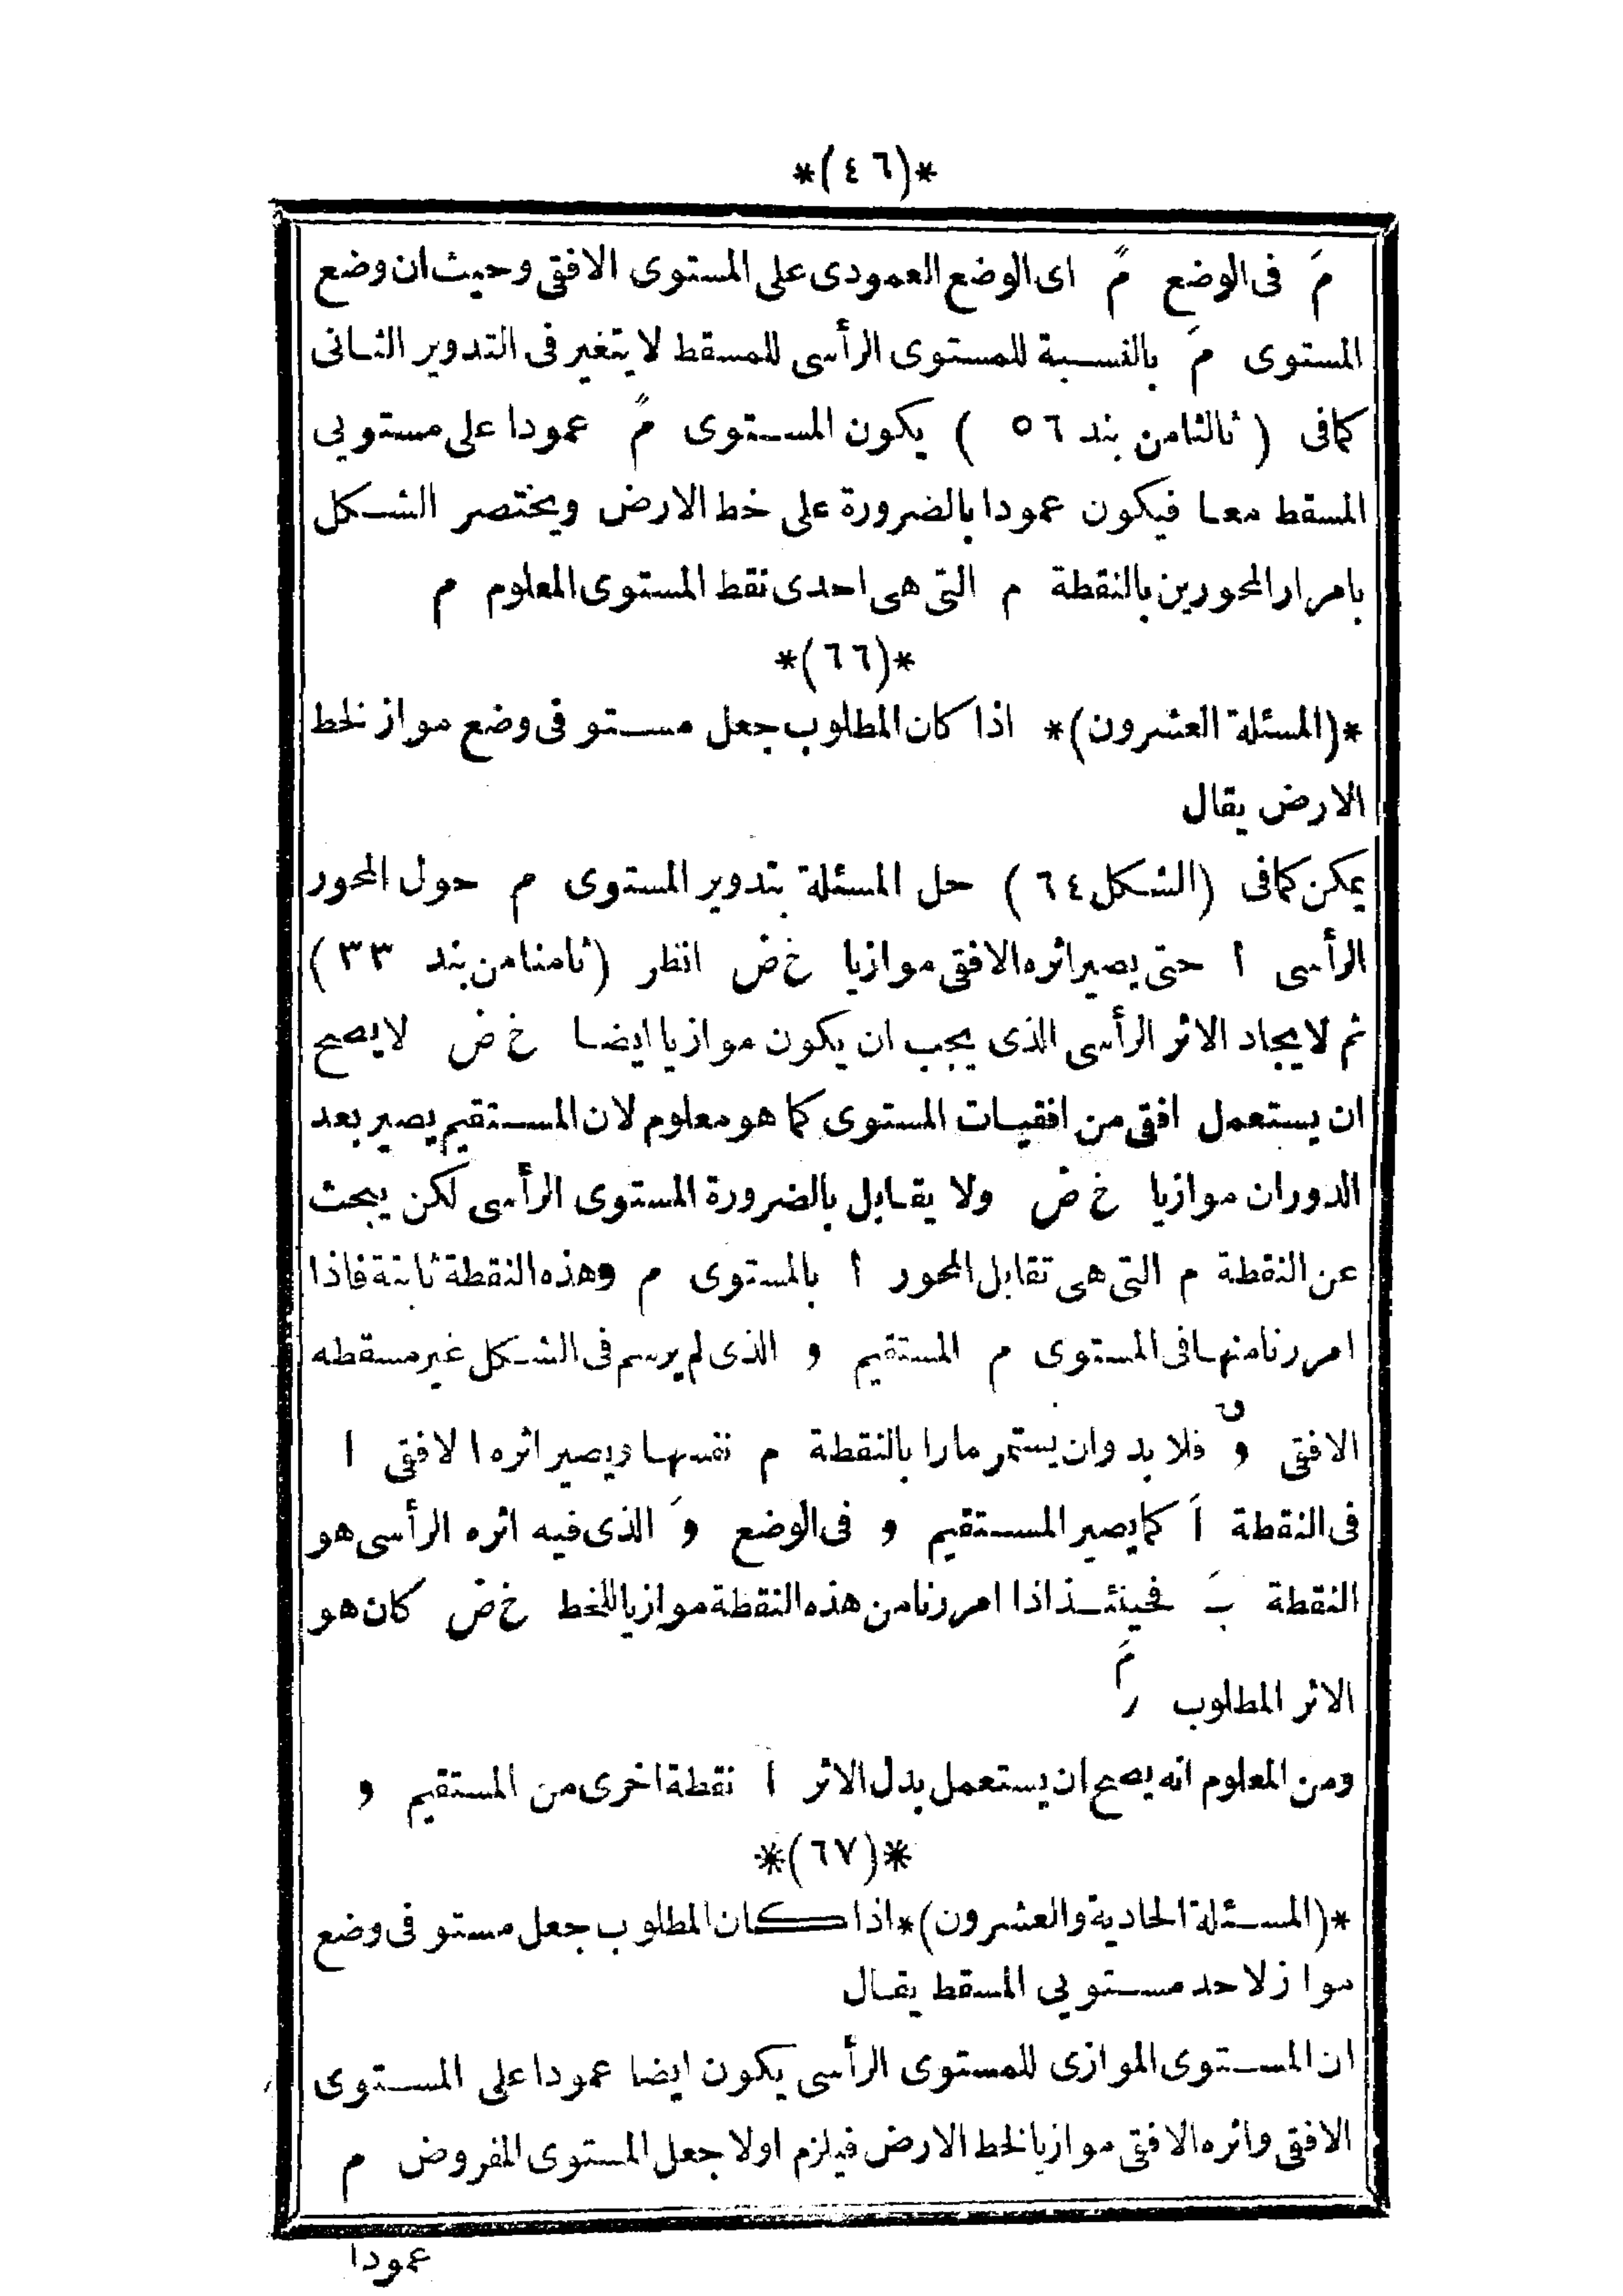 *(٤٦)*
مَ فى الوضع مً اى الوضع العمودى على المستوى الافقى وحيث ان وضع
المستوى مَ بالنسبة للمستوى الرأسى للمسقط لا يتغير فى التدوير الثانى
كمافى (ثالثا من بند ٥٦) يكون المستوى مً عمودا على مستويى
المسقط معا فيكون عمودا بالضرورة على خط الارض ويختصر الشكل
بامرار المحورين بالنقطة م التى هى احدى نقط المستوى المعلوم م
*(٦٦)*
*(المسئلة العشرون)* اذا كان المطلوب جعل مستو فى وضع مواز لخط
الارض يقال
يمكن كمافى (الشكل ٦٤) حل المسئلة بتدوير المستوى م حول المحور
الرأسى ا حتى يصير اثره الافقى موازيا خ ض انظر (ثامنا من بند ٣٣)
ثم لايجاد الاثر الرأسى الذى يجب ان يكون موازيا ايضا خ ض لايصح
ان يستعمل افقى من افقيات المستوى كما هو معلوم لان المستقيم يصير بعد
الدوران موازيا خ ض ولا يقابل بالضرورة المستوى الرأسى لكن يبحث
عن النقطة م التى هى تقابل المحور ا بالمستوى م وهذه النقطة ثابتة فاذا
امررنا منها فى المستوى م المستقيم و الذى لم يرسم فى الشكل غير مسقطه
الافقى وٯ فلا بد وان يستمر مارا بالنقطة م نفسها ويصير اثره الافقى ا
فى النقطة اَ كما يصير المستقيم و فى الوضع وَ الذى فيه اثره الرأسى هو
النقطة بَ فحينئذ اذا امررنا من هذه النقطة موازيا للخط خ ض كان هو
الاثر المطلوب رمَ
ومن المعلوم انه يصح ان يستعمل بدل الاثر ا نقطة اخرى من المستقيم و
*(٦٧)*
*(المسئلة الحادية والعشرون)* اذا كان المطلوب جعل مستو فى وضع
مواز لاحد مستويى المسقط يقال
ان المستوى الموازى للمستوى الرأسى يكون ايضا عمودا على المستوى
الافقى واثره الافقى موازيا لخط الارض فيلزم اولا جعل المستوى المفروض م
عمودا